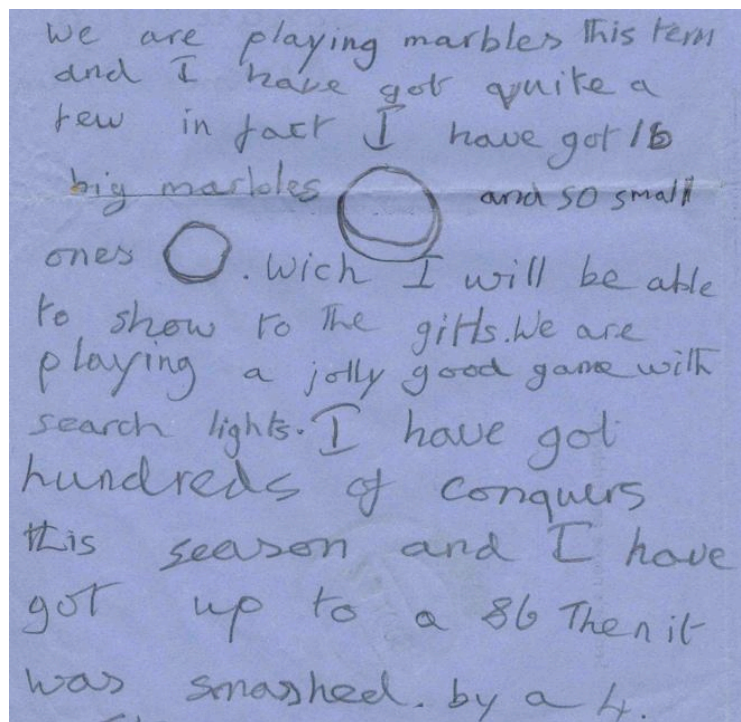 We are playing marbles this term
and I have got quite a
few in fact I have got 16
big marbles and 50 small
ones . Wich I will be able
to show to the girls. We are
playing a jolly good game with
search lights. I have got
hundreds of conquers
this season and I have
got up to a 86 Then it
was smashed. by a 4.